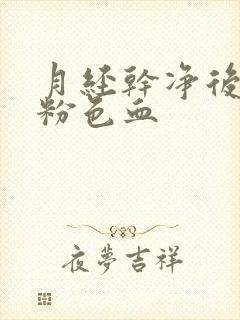 月经幹净後
粉色血
夜夢吉祥